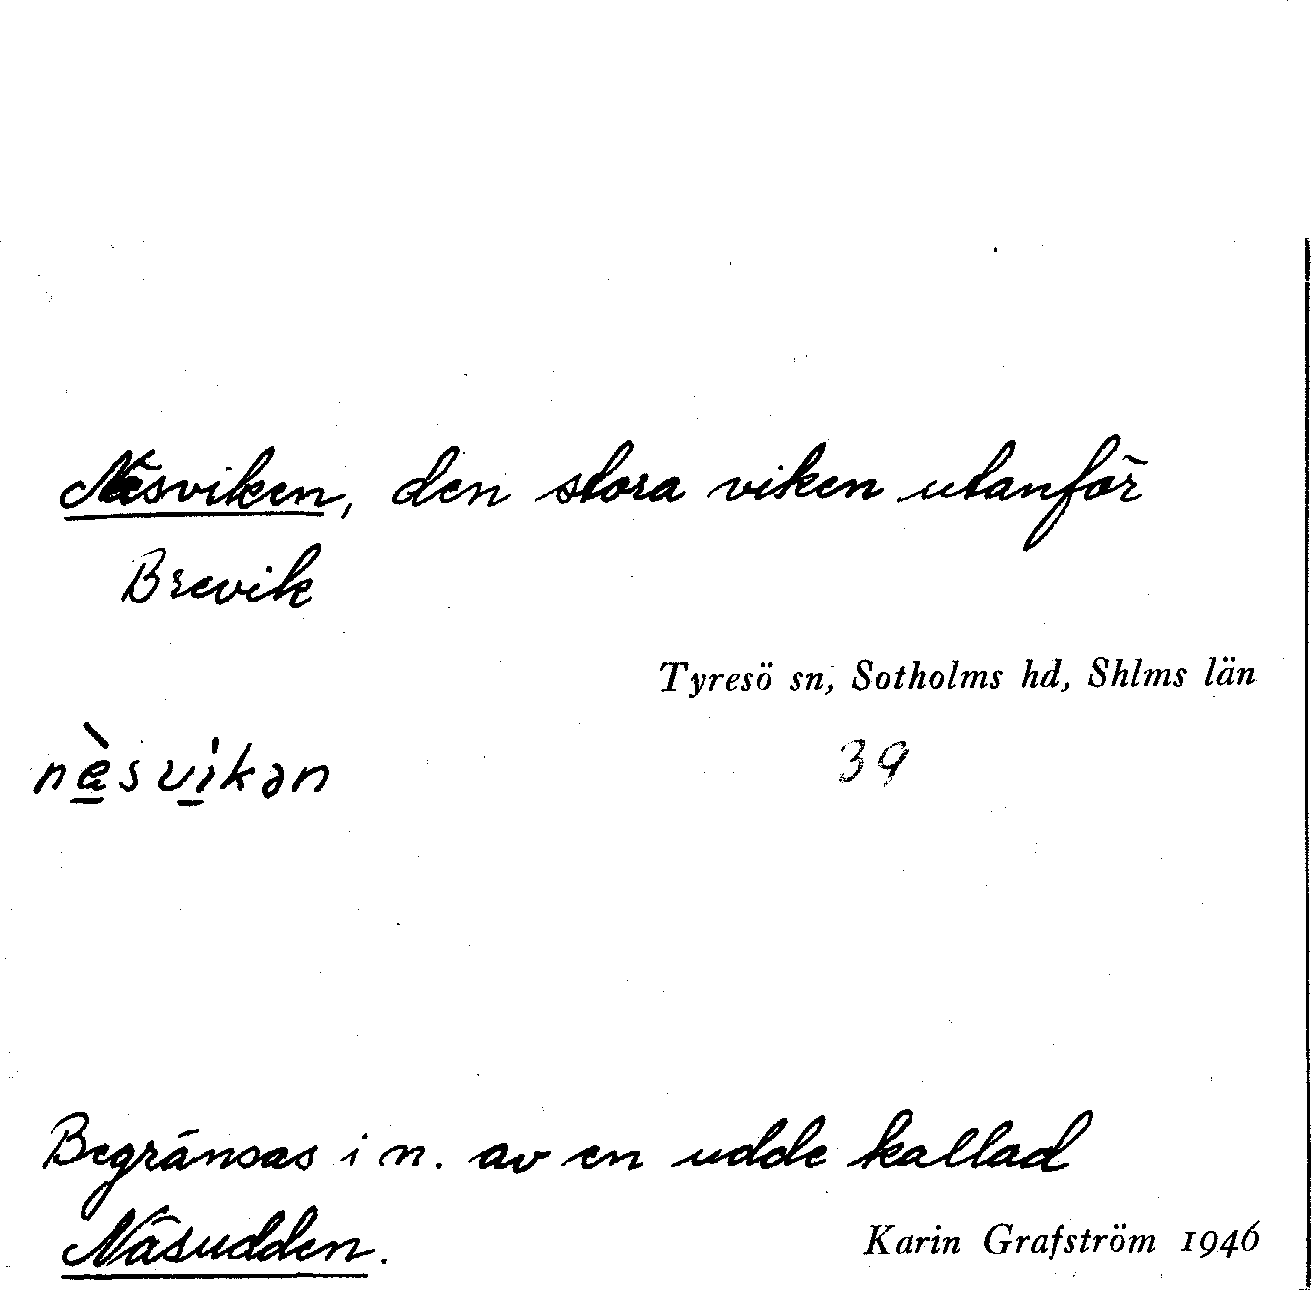 Näsviken, den stora viken utanför
Brevik
Tyresö sn, Sotholms hd, Shlms län
nè̱svi̱̍kən
39
Begränsas i n. av en udde kallad
Näsudden.
Karin Grafström 1946